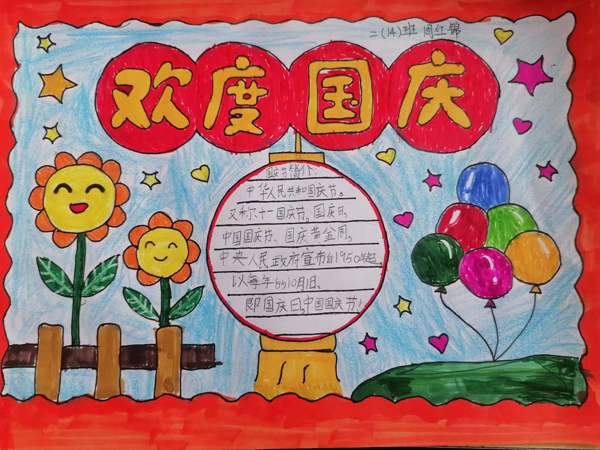 二(14)班 周红锦
欢度国庆
国庆节简介:
中华人民共和国国庆节。
又称十一国庆节,国庆日,
中国国庆节、国庆黄金周。
中央人民政府宣布自1950年起,
以每年的10月1日,
即国庆日,中国国庆节!